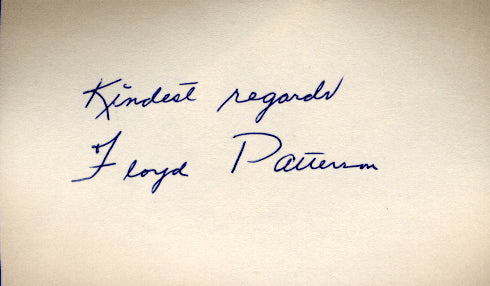 Kindest regards
Floyd Patterson